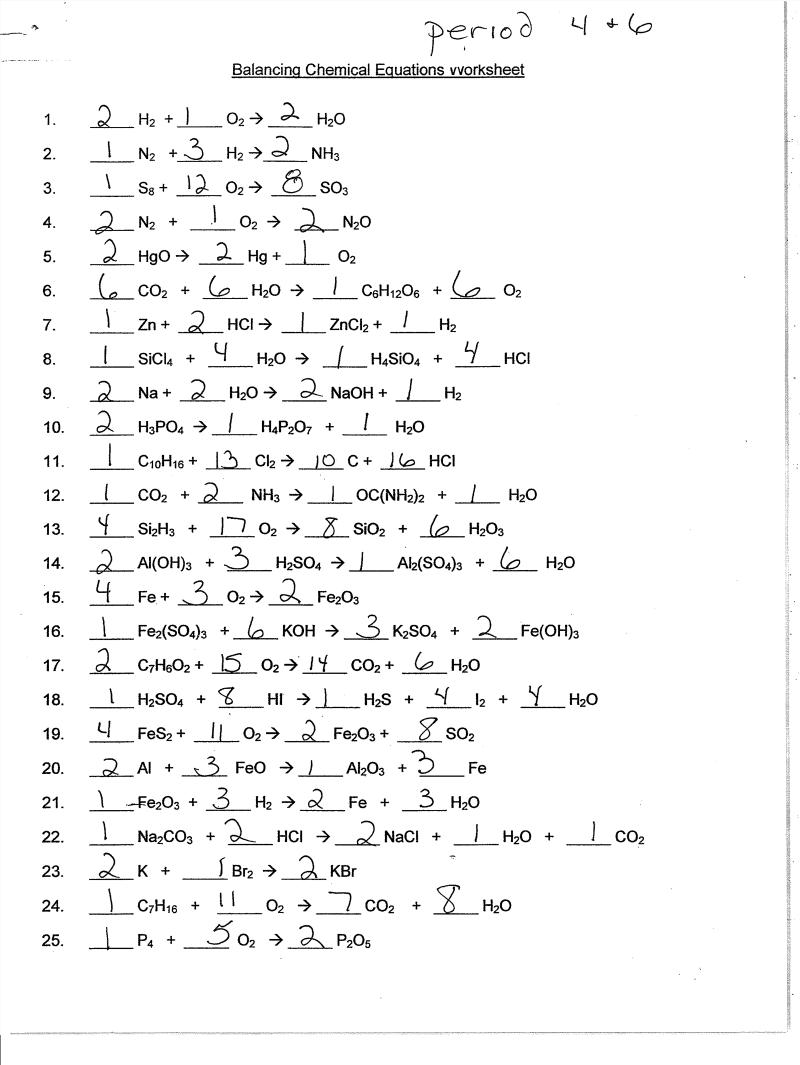 period 4 + 6
Balancing Chemical Equations vvorksheet
1. 2 H₂ + 1 O₂ → 2 H₂O
2. 1 N₂ + 3 H₂ → 2 NH₃
3. 1 S₈ + 12 O₂ → 8 SO₃
4. 2 N₂ + 1 O₂ → 2 N₂O
5. 2 HgO → 2 Hg + 1 O₂
6. 6 CO₂ + 6 H₂O → 1 C₆H₁₂O₆ + 6 O₂
7. 1 Zn + 2 HCl → 1 ZnCl₂ + 1 H₂
8. 1 SiCl₄ + 4 H₂O → 1 H₄SiO₄ + 4 HCl
9. 2 Na + 2 H₂O → 2 NaOH + 1 H₂
10. 2 H₃PO₄ → 1 H₄P₂O₇ + 1 H₂O
11. 1 C₁₀H₁₆ + 13 Cl₂ → 10 C + 16 HCl
12. 1 CO₂ + 2 NH₃ → 1 OC(NH₂)₂ + 1 H₂O
13. 4 Si₂H₃ + 17 O₂ → 8 SiO₂ + 6 H₂O₃
14. 2 Al(OH)₃ + 3 H₂SO₄ → 1 Al₂(SO₄)₃ + 6 H₂O
15. 4 Fe + 3 O₂ → 2 Fe₂O₃
16. 1 Fe₂(SO₄)₃ + 6 KOH → 3 K₂SO₄ + 2 Fe(OH)₃
17. 2 C₇H₆O₂ + 15 O₂ → 14 CO₂ + 6 H₂O
18. 1 H₂SO₄ + 8 HI → 1 H₂S + 4 I₂ + 4 H₂O
19. 4 FeS₂ + 11 O₂ → 2 Fe₂O₃ + 8 SO₂
20. 2 Al + 3 FeO → 1 Al₂O₃ + 3 Fe
21. 1 Fe₂O₃ + 3 H₂ → 2 Fe + 3 H₂O
22. 1 Na₂CO₃ + 2 HCl → 2 NaCl + 1 H₂O + 1 CO₂
23. 2 K + 1 Br₂ → 2 KBr
24. 1 C₇H₁₆ + 11 O₂ → 7 CO₂ + 8 H₂O
25. 1 P₄ + 5 O₂ → 2 P₂O₅